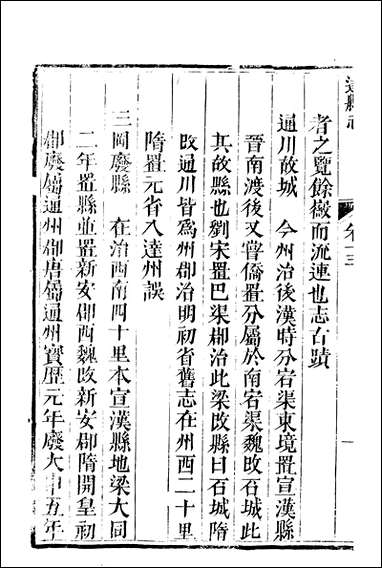 達縣志
卷十三
一
者之覽餘徽而流連也志古蹟
通川故城　今州治後漢時分宕渠東境置宣漢縣
晉南渡後又嘗僑置分屬於南宕渠魏改石城此
其故縣也劉宋置巴渠郡治此梁改縣曰石城隋
改通川皆爲州郡治明初省舊志在州西二十里
隋置元省入達州誤
三岡廢縣　在治西南四十里本宣漢縣地梁大同
二年置縣並置新安郡西魏改新安郡隋開皇初
郡廢屬通州郡唐屬通州寶歷元年廢大中五年